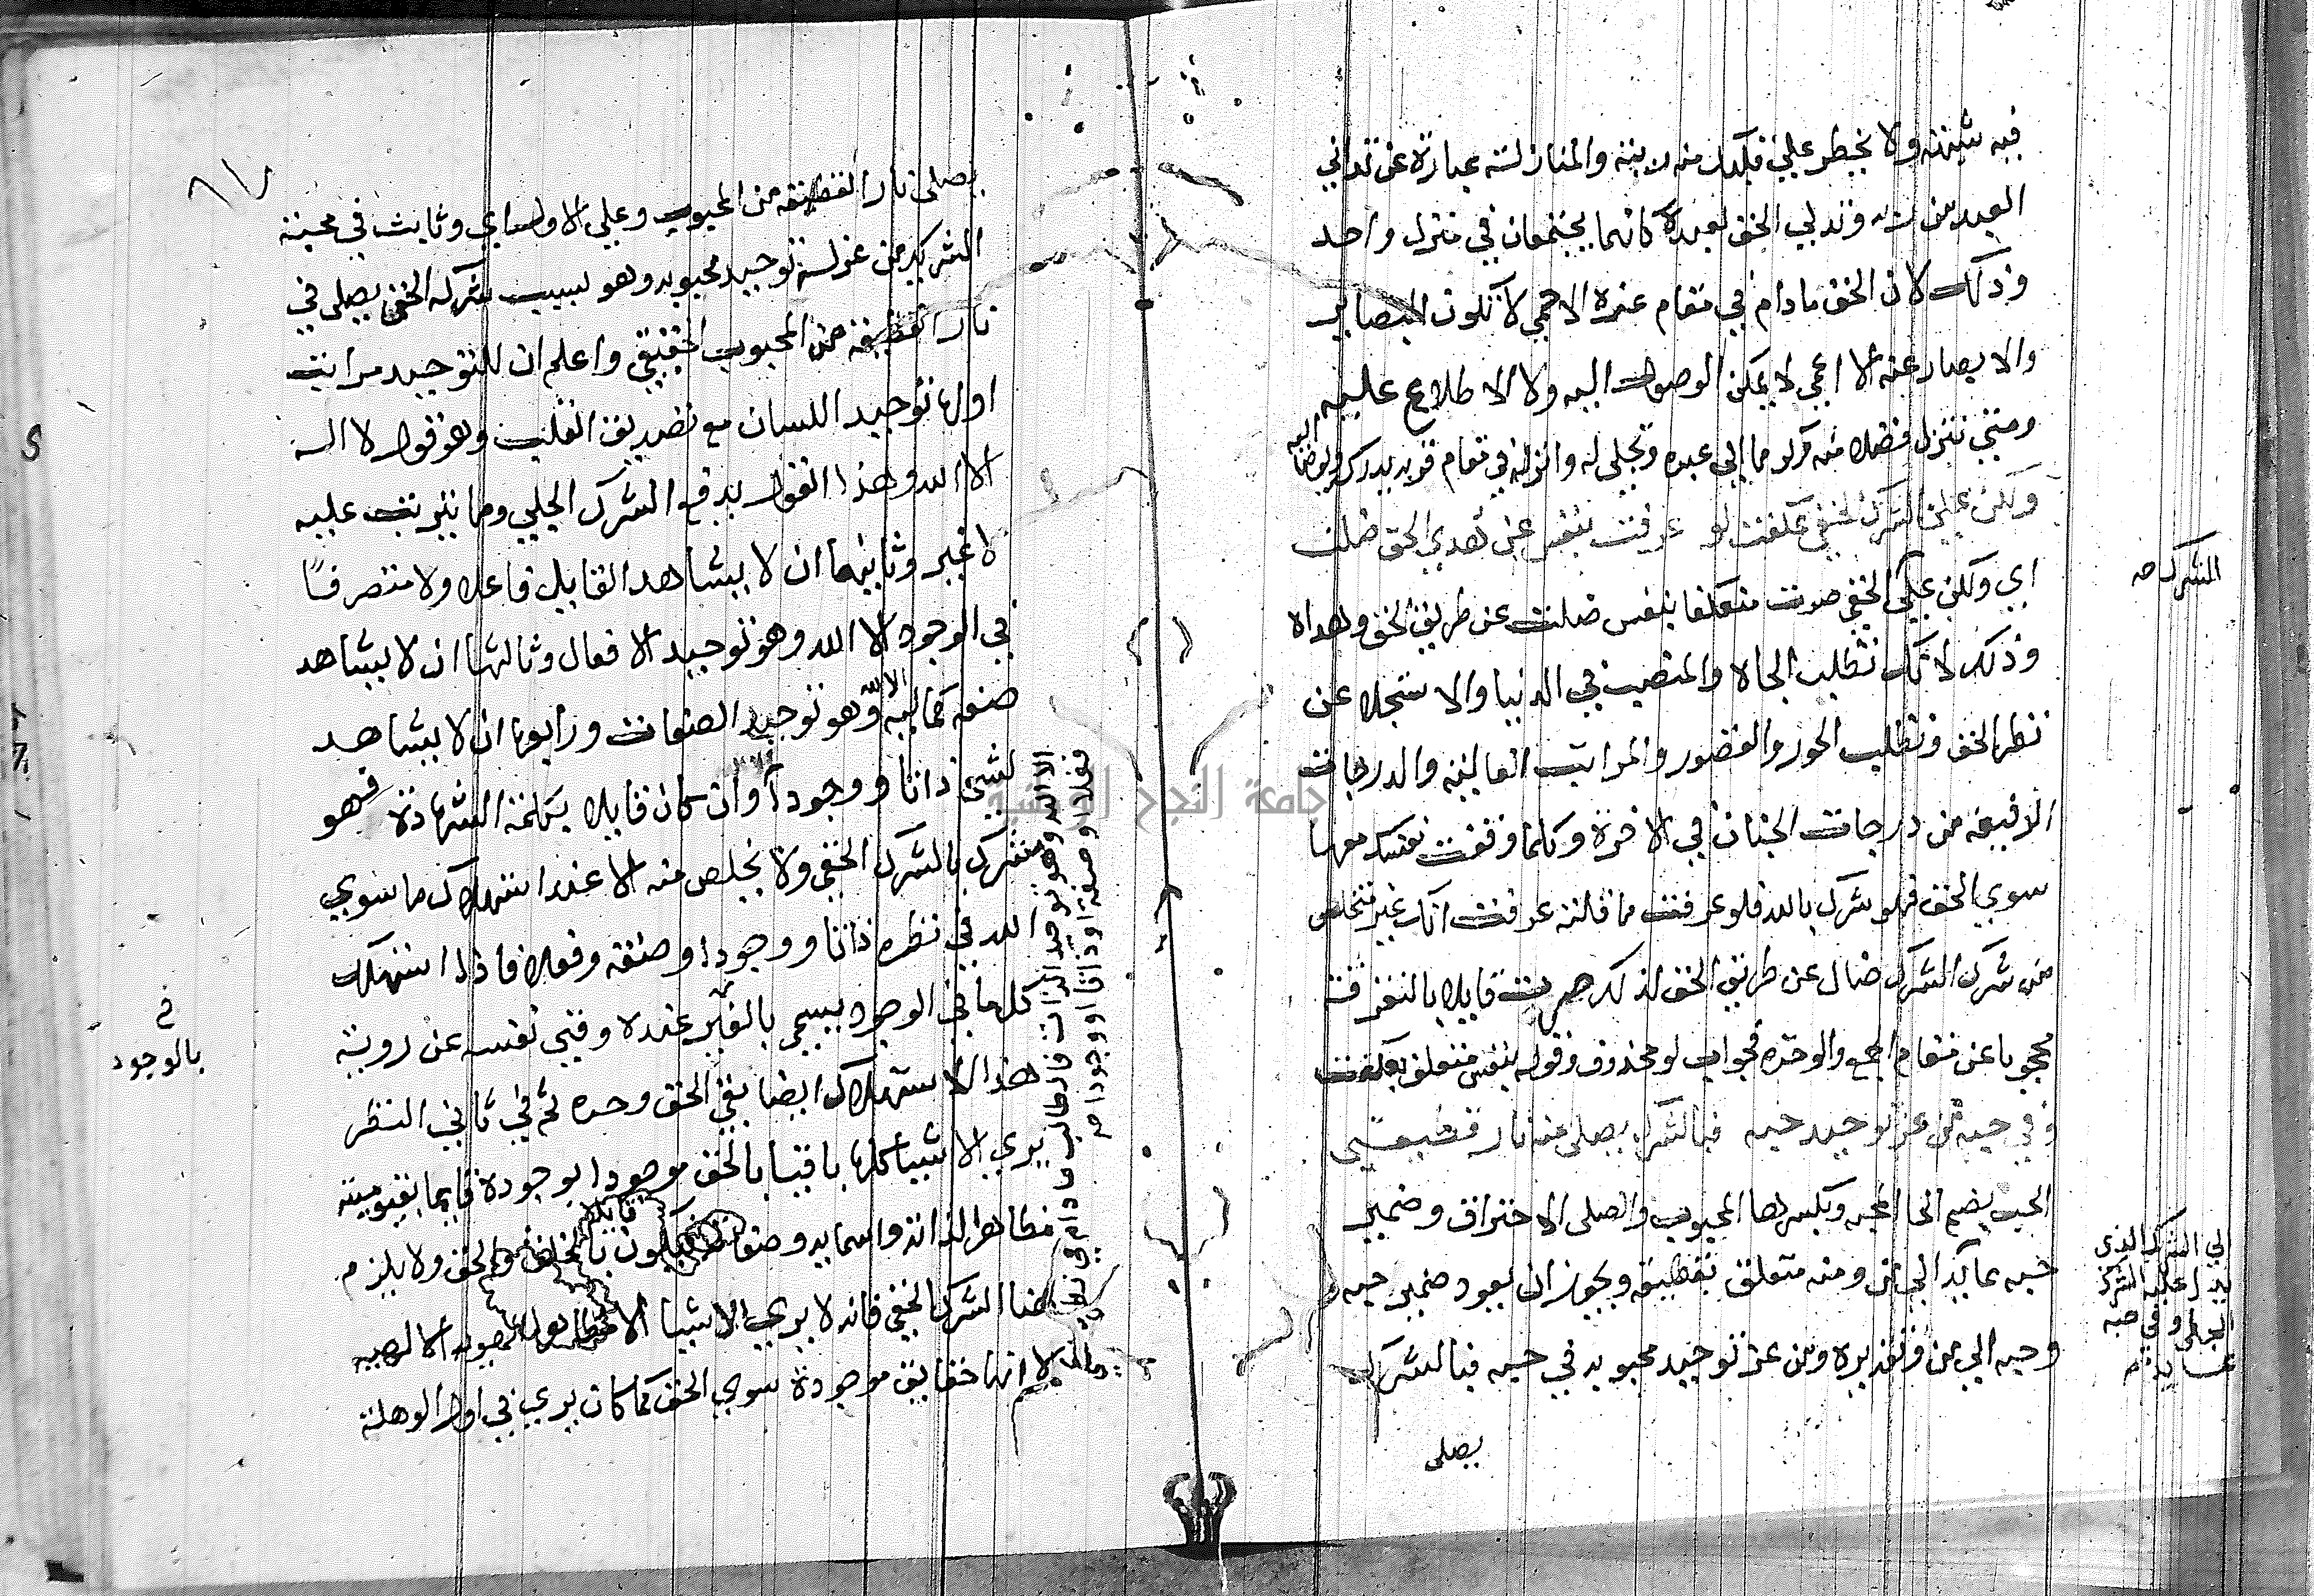 فيه شبهة ولا يخطر علي قلبك منه ريبة والمنازلة عبارة عن تداني
العبد من ربه وتدلي الحق لعبده كانهما يجتمعان في منزل واحد
وذلك لان الحق مادام في مقام عزه الاحمي لا تكون البصاير
والابصار عنه الا اعمي لا يمكن الوصول اليه ولا الاطلاع عليه
ومتي تنزل فضلا منه وكرما الي عبده وتجلي له وانزله في مقام قربه يدرك
ولكن علي الشرك الخفي عكفت لو عرفت بنفس عن هدي الحق ضلت
اي ولكن علي الخفي صرت متعكفا بنفس ضلت عن طريق الحق وهداه
وذلك لانك تطلب الجاه والمنصب في الدنيا والاستجلا عن
نظر الحق وتطلب الحور والقصور والمراتب العالية والدرجات
الرفيعة من درجات الجنان في الاخرة وكلما وقفت نفسك معها
سوي الحق فهو شرك بالله فلو عرفت ما قلته عرفت انك غير متخلص
من شرك الشرك ضال عن طريق الحق لذلك صرت قايلا بالتفرقة
محجوبا عن مقام الجمع والوحدة فجواب لو محذوف وقوله بنفس متعلق بعكفت
وفي حبه من عز توحيد حبه فبالشرك يصلي منه نار قطيعتي
الحب بضم الحا المحبة وبكسرها المحبوب والصلي الاحتراق وضمير
حبه عايد الي من ومنه متعلق بقطيعة ويجوز ان يعود ضمير حبه
وحبه الي من وتقديره ومن عز توحيد محبوبه في حبه فبالشرك
يصلي
المشرك صح
الي الشرك الذي
يدل عليه الشرك
الجلي وفي حبه
يصلي نار القطيعة من المحبوب وعلي الاول اي وثابت في محبته
الشريك من عزلة توحيد محبوبه وهو بسبب شركه الخفي يصلي في
نار القطيعة من المحبوب الحقيقي واعلم ان للتوحيد مراتب
اولها توحيد اللسان مع تصديق القلب وهو قول لا اله
الا الله وهذا القول يدفع الشرك الجلي وما يترتب عليه
لا غير وثانيها ان لا يشاهد القايل فاعلا ولا متصرفا
في الوجود الا الله وهو توحيد الافعال وثالثها ان لا يشاهد
صفة كمالية الا لله وهو توحيد الصفات ورابعها ان لا يشاهد
لشي ذاتا ووجودا وان كان قايلا بكلمة الشهادة فهو
مشرك بالشرك الخفي ولا يخلص منه الا عند استهلاك ما سوي
الله في نظره ذاتا ووجودا وصفة وفعلا فاذا استهلك
كل ما في الوجود يسمي بالغير عنده وفني نفسه عن روية
هذا الاستهلاك ايضا بقي الحق وحده ثم في ثاني النظر
يري الاشيا كلها باقيا بالحق موجودا بوجوده قايما بقيوميته
مظاهر لذاته واسمايه وصفاته فيكون قايلا بالخلق والحق ولا يلزم
هنا الشرك الخفي فانه لا يري الاشيا الا مظاهر الالهية
لا انها حقايق موجودة سوي الحق كما كان يري في اول الوهلة
بالوجود
فعلا او صفة او ذاتا او وجودا
الا الله وهو توحيد الذات فالطالب ما دام في نظره
جامعة النجاح الوطنية